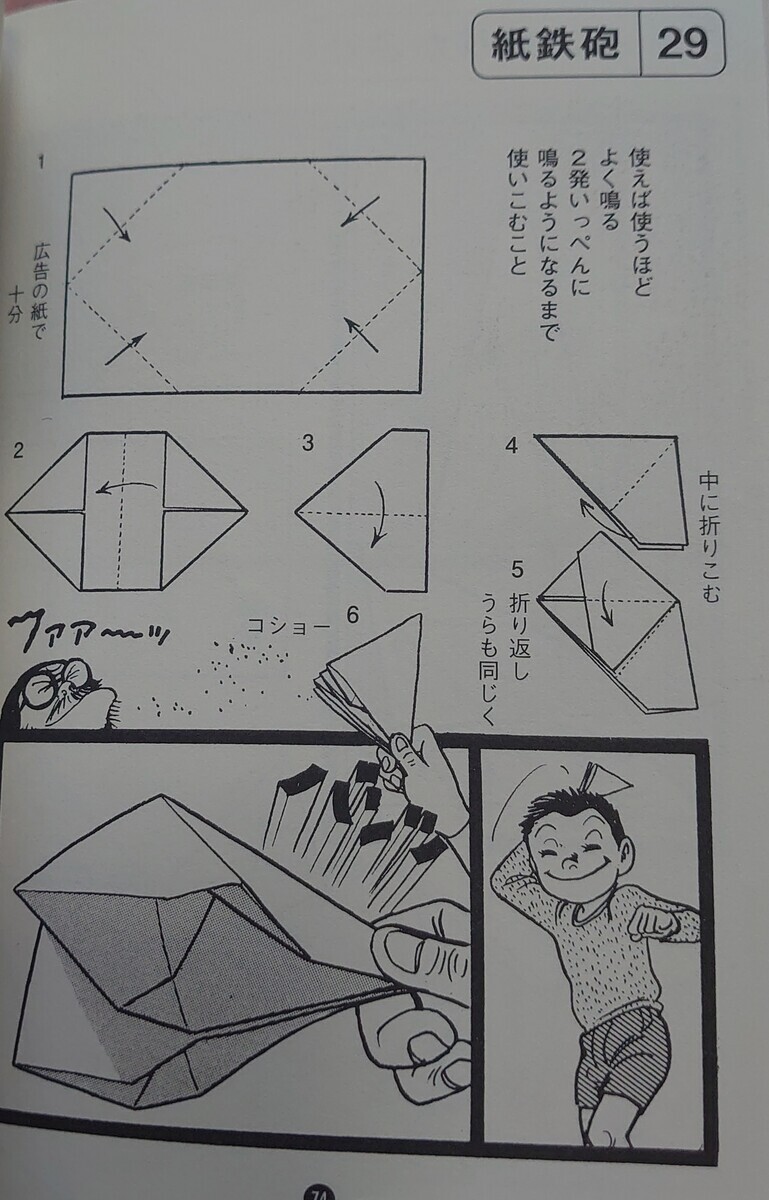 紙鉄砲 29
使えば使うほど
よく鳴る
2発いっぺんに
鳴るようになるまで
使いこむこと
1
広告の紙で
十分
2
3
4
中に折りこむ
5
折り返し
うらも同じく
6
コショー
ファァーッ
74